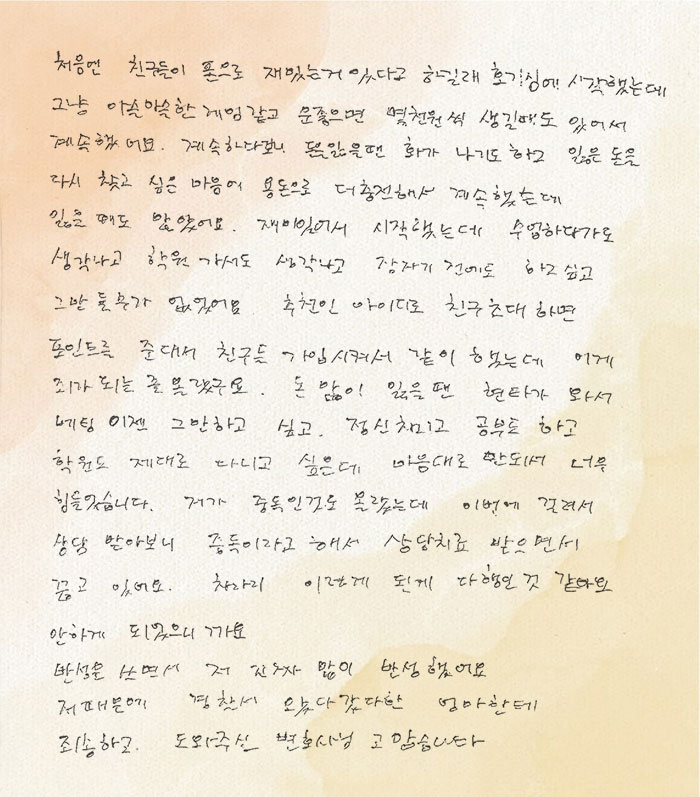 처음엔 친구들이 폰으로 재밌는거 있다고 하길래 호기심에 시작했는데
그냥 아슬아슬한 게임같고 운좋으면 몇천원씩 생길때도 있어서
계속했어요. 계속하다보니 돈을잃을땐 화가 나기도하고 잃은 돈을
다시 찾고 싶은 마음에 용돈으로 더충전해서 계속했는데
잃을 때도 많았어요. 재미있어서 시작했는데 수업하다가도
생각나고 학원 가서도 생각나고 잠자기 전에도 하고싶고
그만 둘수가 없었어요 추천인 아이디로 친구초대 하면
포인트를 준대서 친구들 가입시켜서 같이 했는데 이게
죄가 되는 줄 몰랐구요. 돈 많이 잃을땐 현타가 와서
베팅 이젠 그만하고 싶고. 정신차리고 공부도 하고
학원도 제대로 다니고 싶은데 마음대로 안되서 너무
힘들었습니다. 제가 중독인것도 몰랐는데 이번에 걸려서
상담 받아보니 중독이라고 해서 상담치료 받으면서
끊고 있어요. 차라리 이렇게 된게 다행인 것 같아요
안하게 되었으니까요
반성문 쓰면서 저 진짜 많이 반성했어요
저때문에 경찰서 왔다갔다한 엄마한테
죄송하고. 도와주신 변호사님 고맙습니다